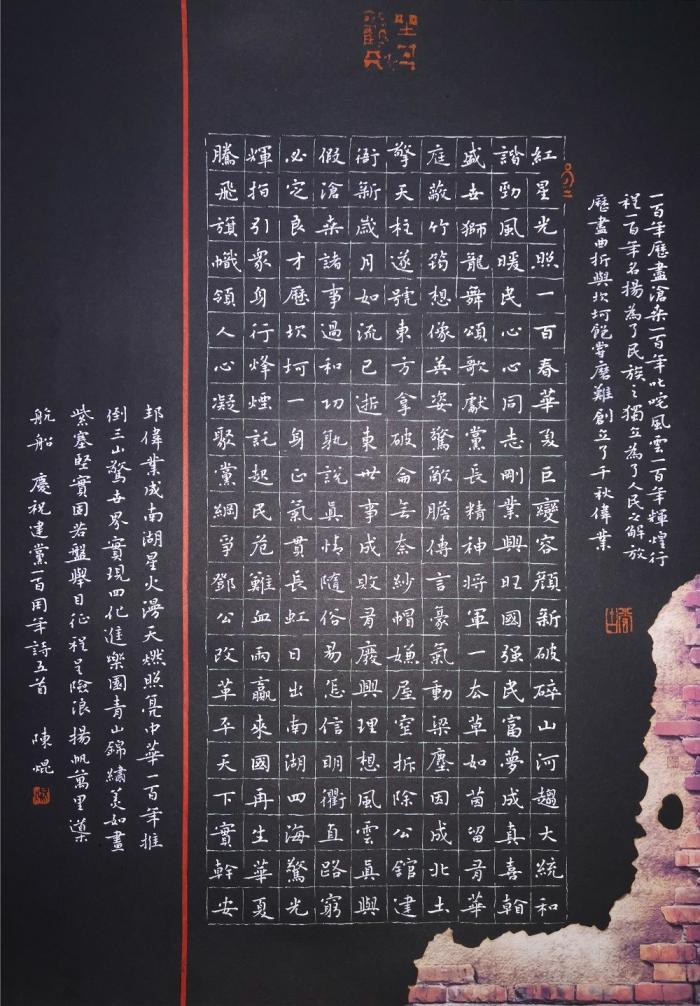 一百年歷盡滄桒一百年叱咤風雲一百年輝煌行
程一百年名揚為了民族之獨立為了人民之解放
歷盡曲折與坎坷飽嘗磨難創立了千秋偉業
紅星光照一百春華夏巨變容顏新破碎山河趨大統和
諧勁風暖民心心同志剛業興旺國强民富夢成真喜翰
盛世獅龍舞頌歌獻黨長精神將軍一去草如茵留有華
庭蔽竹筠想像英姿驚敵膽傳言豪氣動梁塵因成北土
擎天柱遂號東方拿破侖無奈紗帽嫌屋窒拆除公館建
衙新歲月如流已逝東世事成敗有廢興理想風雲真與
假滄桒諸事過和功孰說真情隨俗易怎信明衢直路窮
必定良才歷坎坷一身正氣貫長虹日出南湖四海驚光
輝指引衆身行烽煙託起民難血雨贏來國再生華夏
騰飛旗幟領人心凝聚黨綱爭鄧公改革平天下實幹安
邦偉業成南湖星火漫天燃照亮中華一百年推
倒三山驚世界實現四化進樂園青山錦繡美如畫
紫塞堅實固若盤舉目征程呈險浪揚帆萬里導
航船 慶祝建黨一百周年詩五首 陳焜